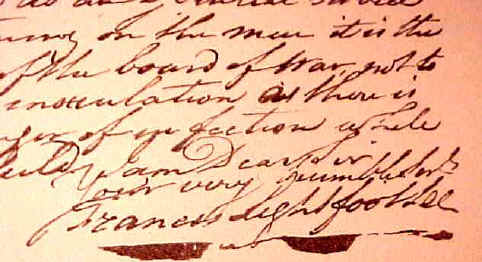 on the men it is the
of the board of War, not to
inoculation as there is
of infection while
I am Dear Sir
Your very humble Servt
Francis Lightfoot Lee